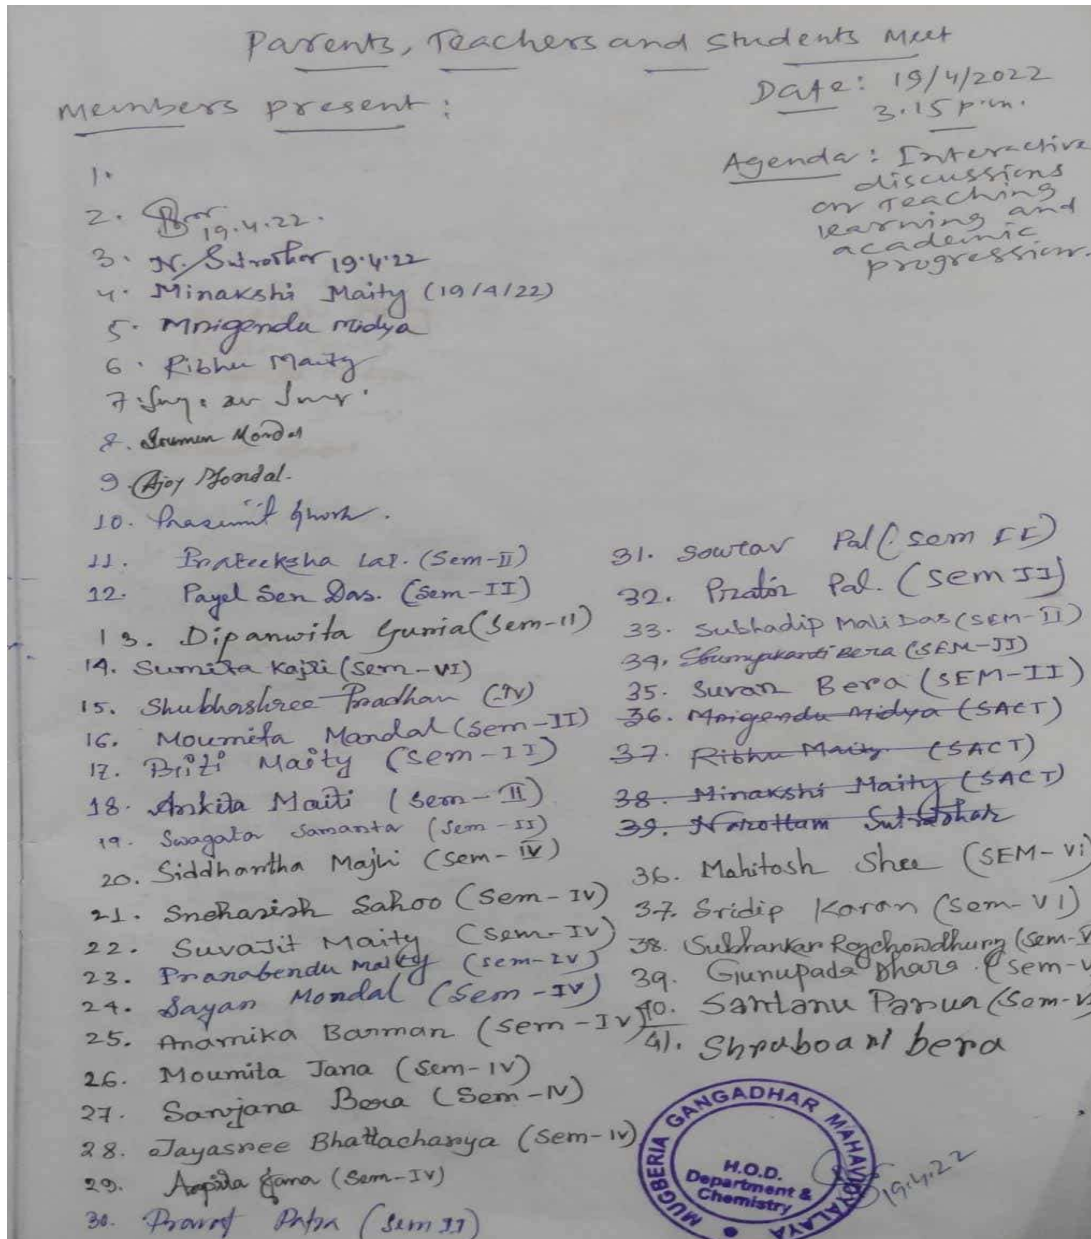 Parents, Teachers and Students Meet
Date: 19/4/2022
3.15 p.m.
Members present:
Agenda: Interactive
discussions
on Teaching
learning and
academic
progression.
1.
2. 19.4.22.
3. N. Sutradhar 19.4.22
4. Minakshi Maity (19/4/22)
5. Mrigendu Midya
6. Ribhu Maity
7.
8. Soumen Mondal
9. Ajoy Mondal.
10. Prasenjit Ghosh.
11. Prateeksha Lal. (Sem-II)
12. Payel Sen Das. (Sem-II)
13. Dipanwita Gunia (Sem-II)
14. Sumita Kajli (Sem-VI)
15. Shubhashree Pradhan (IV)
16. Moumita Mandal (Sem-II)
17. Briti Maity (Sem-II)
18. Ankita Maiti (Sem-II)
19. Swagata Samanta (Sem-II)
20. Siddhartha Majhi (Sem-IV)
21. Snehasish Sahoo (Sem-IV)
22. Suvajit Maity (Sem-IV)
23. Pranabendu Maity (Sem-IV)
24. Sayan Mondal (Sem-IV)
25. Anamika Barman (Sem-IV)
26. Moumita Jana (Sem-IV)
27. Sanjana Bera (Sem-IV)
28. Jayasree Bhattacharya (Sem-IV)
29. Arpita Jana (Sem-IV)
30. Patra (Sem II)
31. Sourav Pal (Sem II)
32. Pal. (Sem II)
33. Subhadip Mali Das (SEM-II)
34. Soumyakanti Bera (SEM-II)
35. Suvan Bera (SEM-II)
36. Mrigendu Midya (SACT)
37. Ribhu Maity (SACT)
38. Minakshi Maity (SACT)
39. Narottam Sutradhar
36. Mahitosh Shee (SEM-VI)
37. Sridip Karan (Sem-VI)
38. Subhankar Roychowdhury (Sem-V
39. Gurupada Dhara (Sem-V
40. Santanu Parua (Sem-V
41. Shraboani bera
MUGBERIA GANGADHAR MAHAVIDYALAYA
H.O.D.
Department &
Chemistry
19.4.22